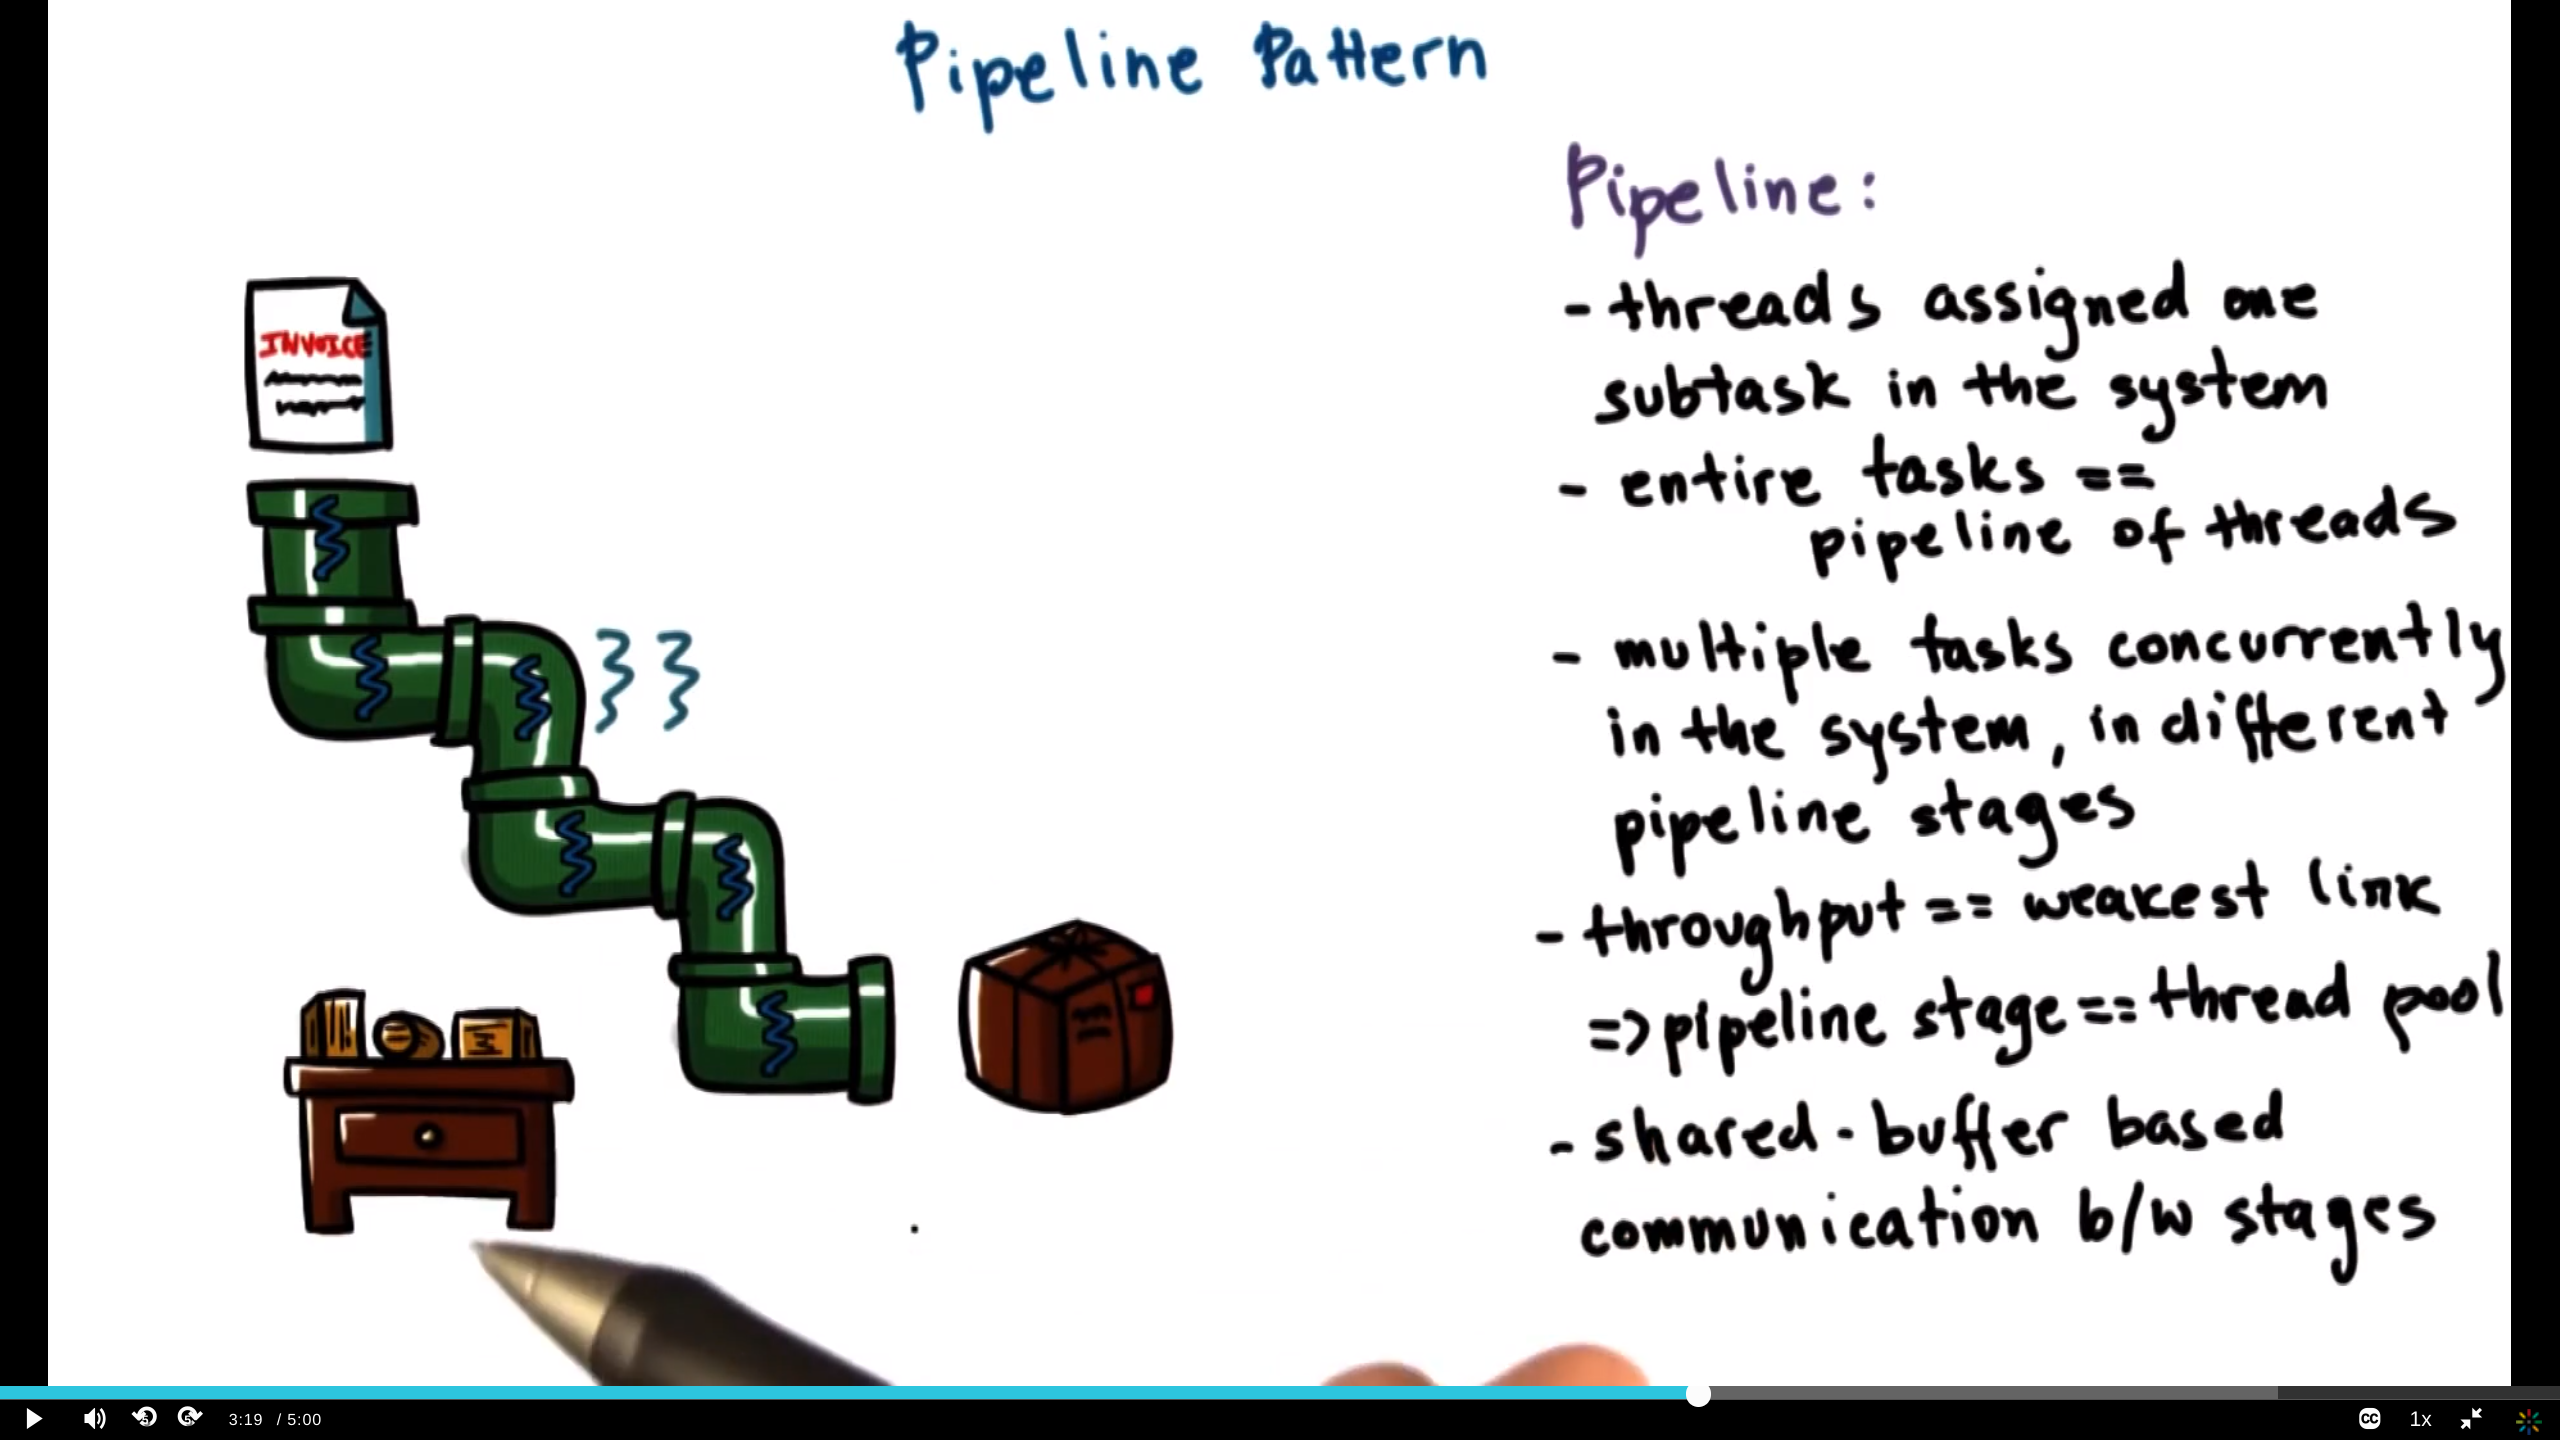 Pipeline Pattern
INVOICE
Pipeline:
- threads assigned one
subtask in the system
- entire tasks ==
pipeline of threads
- multiple tasks concurrently
in the system, in different
pipeline stages
- throughput == weakest link
=> pipeline stage == thread pool
- shared-buffer based
communication b/w stages
5 5 3:19 / 5:00 CC 1x